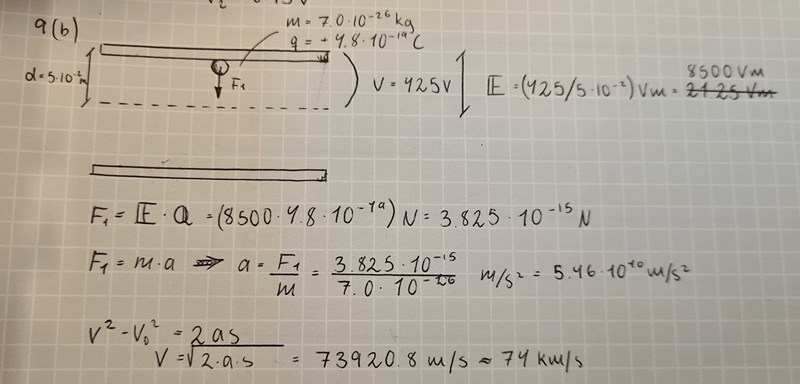 9(b)
m = 7.0·10⁻²⁶ kg
q = + 4.8·10⁻¹⁹ C
d = 5·10⁻²m
F₁
V = 425V
8500 Vm
E = (425/5·10⁻²) Vm = 2125 Vm
F₁ = E · Q = (8500 · 4.8 · 10⁻¹⁹) N = 3.825 · 10⁻¹⁵ N
F₁ = m·a ⇒ a = F₁/m = 3.825 · 10⁻¹⁵/7.0 · 10⁻²⁶ m/s² = 5.46·10¹⁰ m/s²
V² - V₀² = 2as
V = √2·a·s = 73920.8 m/s ≈ 74 km/s